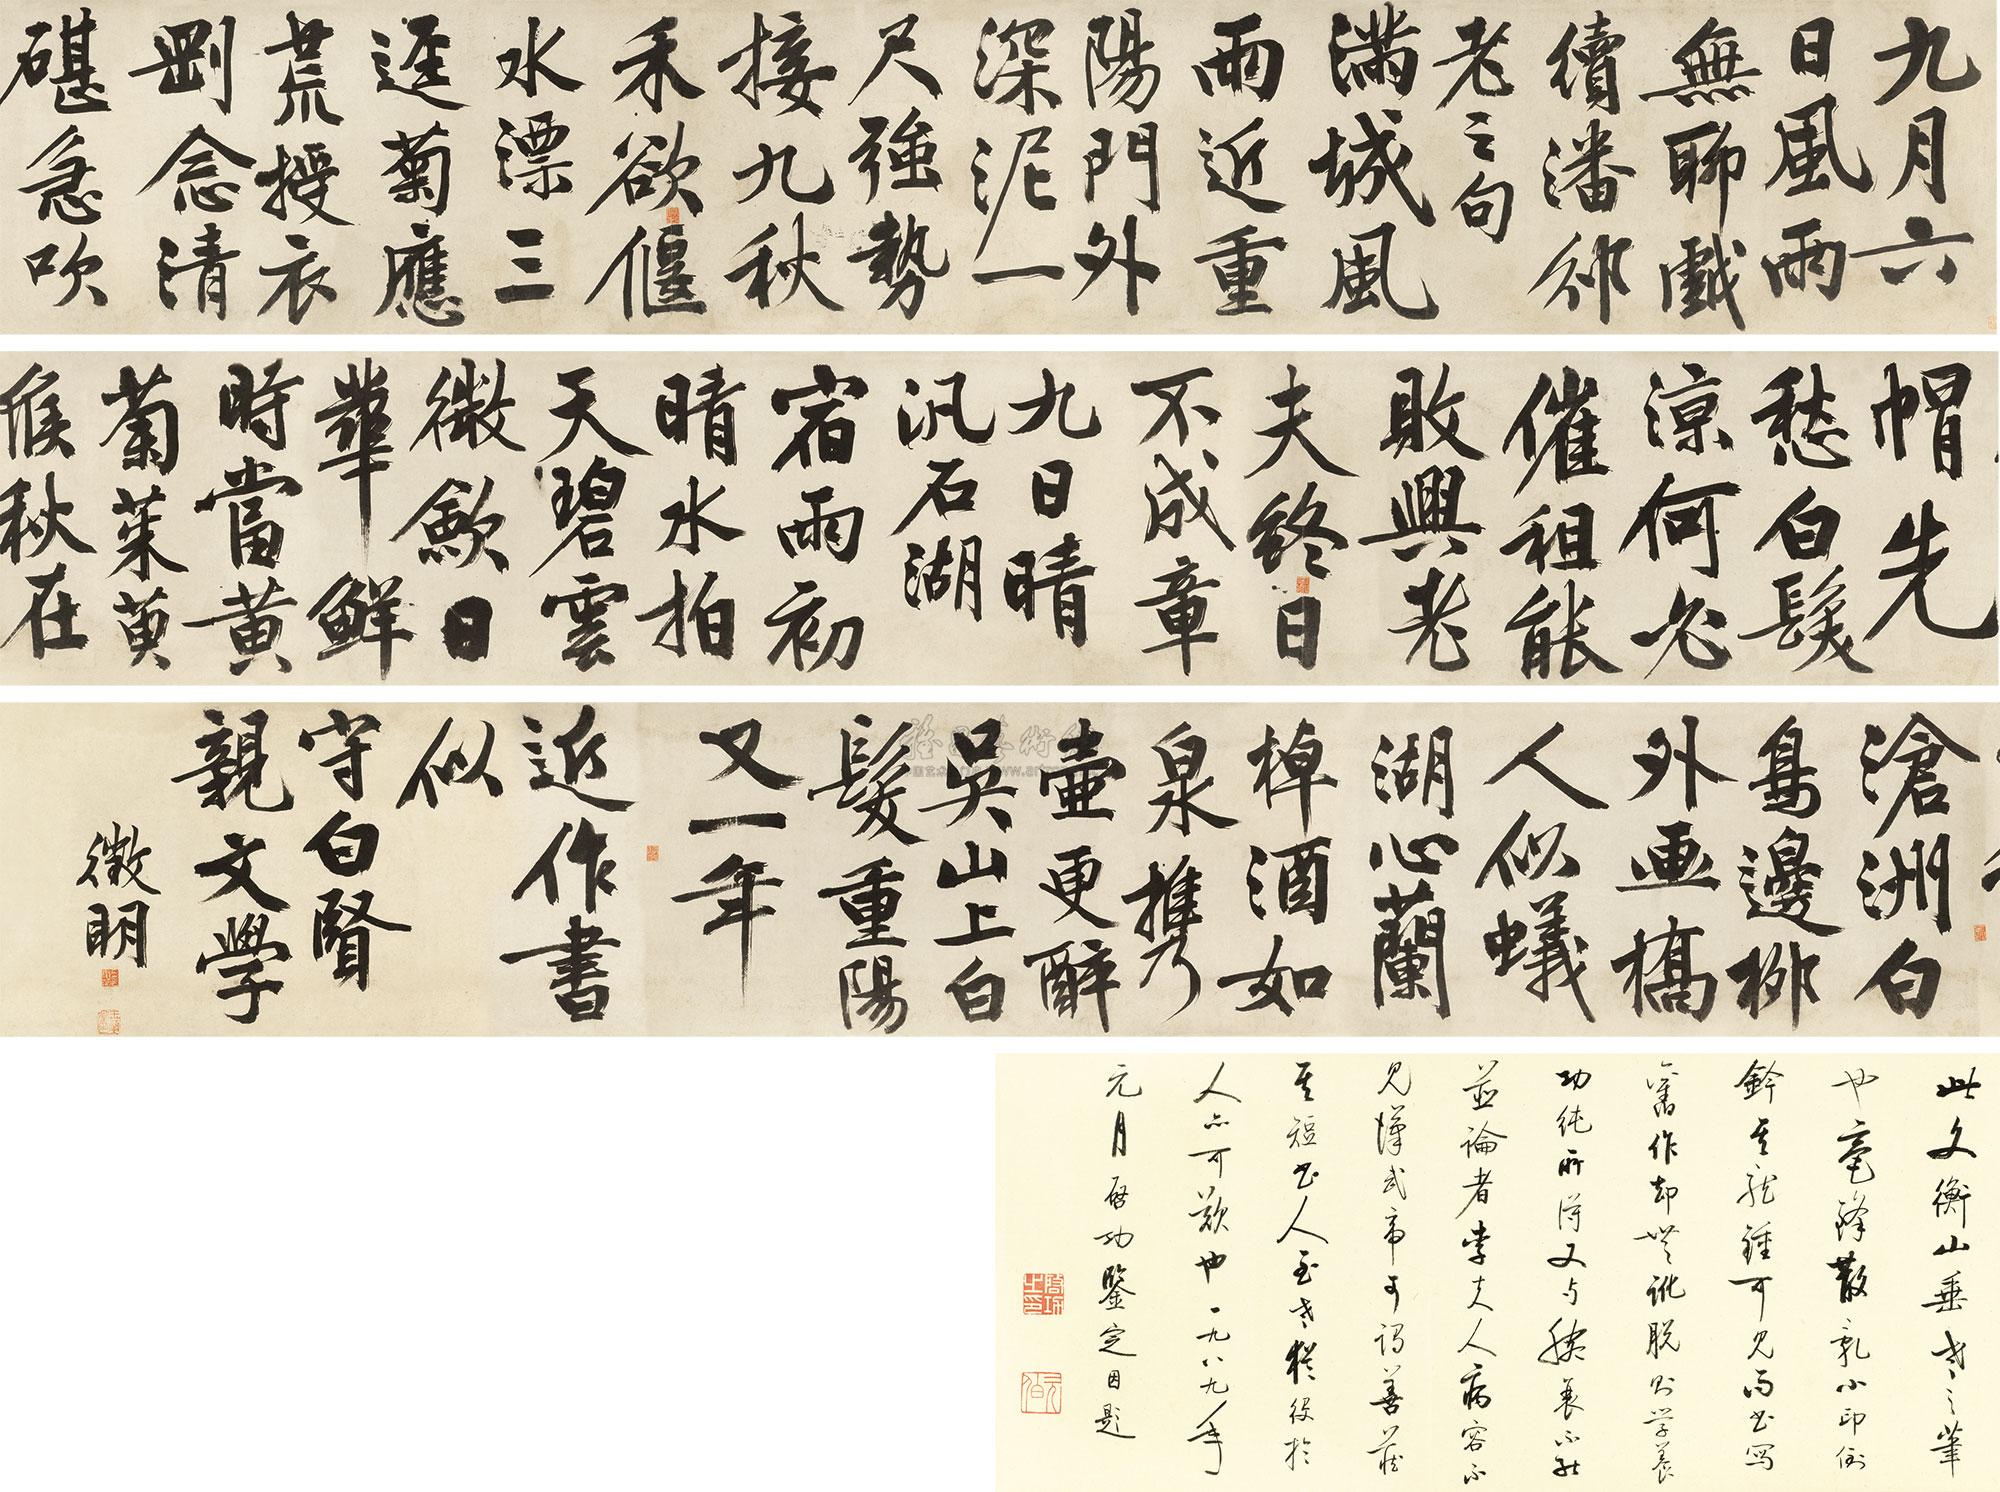 九月六
日風雨
無聊戲
續潘邠
老之句
滿城風
雨近重
陽門外
深泥一
尺強勢
接九秋
禾欲偃
水漂三
逕菊應
荒授衣
剛念清
碪急吹
帽先
愁白髮
涼何必
催租能
敗興老
夫終日
不成章
九日晴
汎石湖
宿雨初
晴水拍
天碧雲
微歛日
華鮮
時當黃
菊茱萸
候秋在
滄洲白
鳥邊柳
外畫橋
人似蟻
湖心蘭
棹酒如
泉携
壺更醉
吳山上白
髮重陽
又一年
近作書
似
守白賢
親文學
徵明
此文衡山垂老之筆
也毫鋒散亂小印倒
鈐其龍鍾可見而书寫
舊作却無訛脱則学養
功純所得又与 衰不能
並論者李夫人病容不
見漢武帝可謂善藏
其短书人至老猶役於
人亦可歎也一九八九年
元月啓功鑒定因題